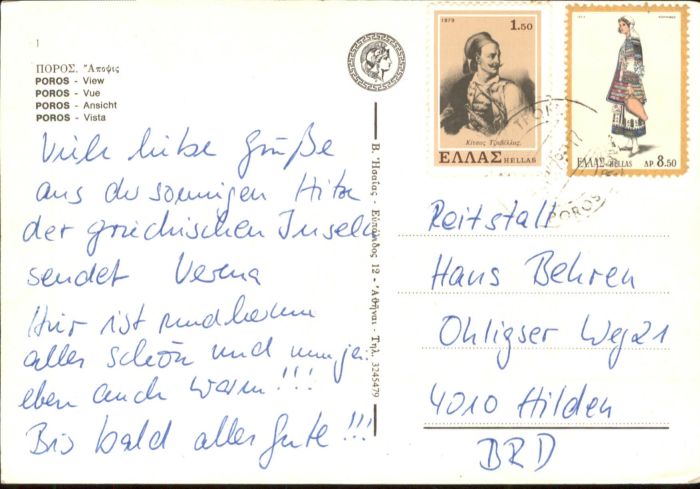 1
ΠΟΡΟΣ. Ἄποψις
POROS - View
POROS - Vue
POROS - Ansicht
POROS - Vista
Viele liebe Grüße
aus der sonnigen Hitze
der griechischen Inseln
sendet Verena
Hier ist rundherum
alles schön und
eben auch warm!!!
Bis bald alles Gute!!!
Β. Ἡσαΐας - Εὐπόλιδος 12 - Ἀθῆναι - Τηλ. 3245479
1979
1.50
Κίτσος Τζαβέλλας.
ΕΛΛΑΣ HELLAS
ΕΛΛΑΣ-HELLAS ΔΡ. 8.50
POROS
Reitstall
Hans Behren
Ohligser Weg 21
4010 Hilden
BRD